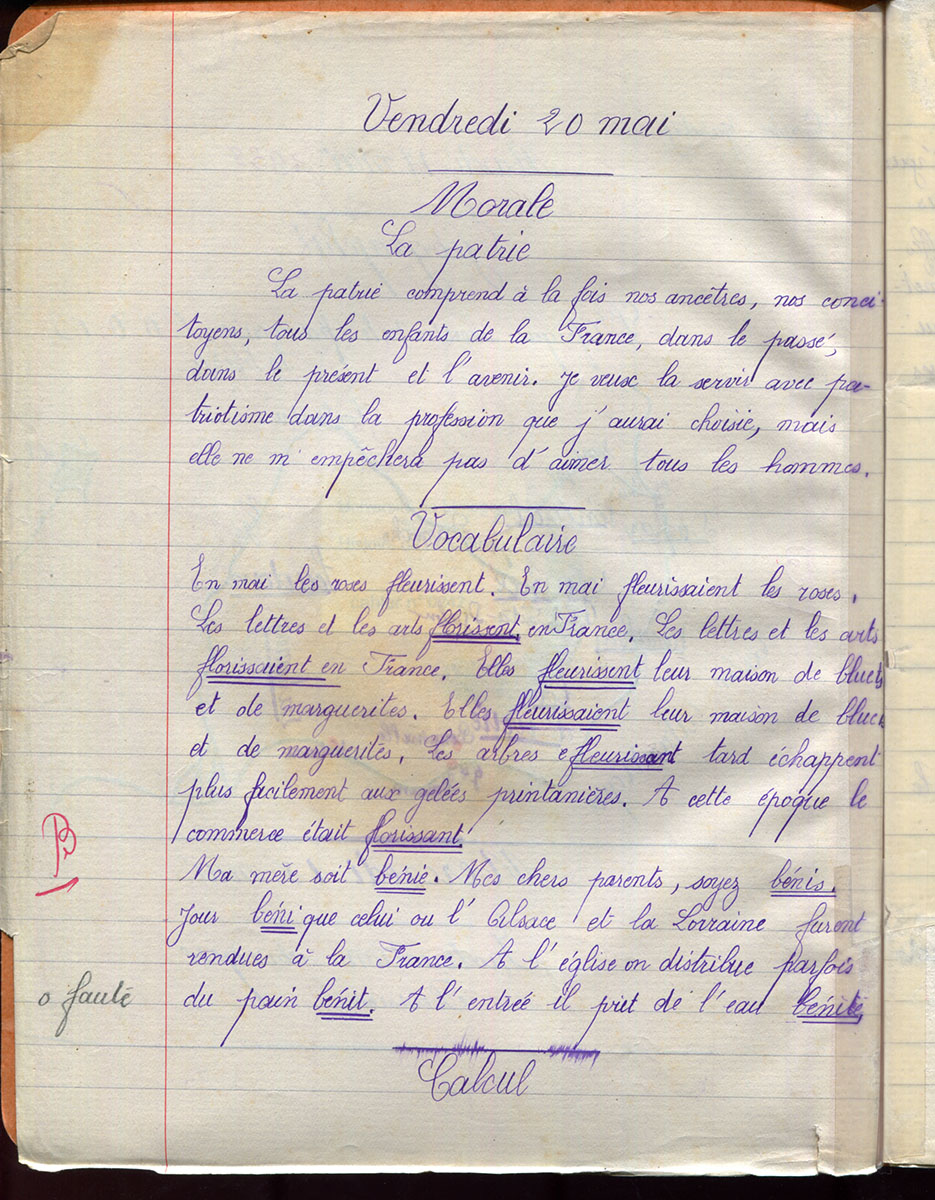 Vendredi 20 mai
Morale
La patrie
La patrie comprend à la fois nos ancêtres, nos conci-
toyens, tous les enfants de la France, dans le passé,
dans le présent et l'avenir. Je veux la servir avec pa-
triotisme dans la profession que j'aurai choisie, mais
elle ne m'empêchera pas d'aimer tous les hommes.
Vocabulaire
En mai les roses fleurissent. En mai fleurissaient les roses.
Les lettres et les arts florissent en France. Les lettres et les arts
florissaient en France. Elles fleurissent leur maison de bluets
et de marguerites. Elles fleurissaient leur maison de bluets
et de marguerites. Les arbres fleurissant tard échappent
plus facilement aux gelées printanières. A cette époque le
commerce était florissant.
Ma mère soit bénie. Mes chers parents, soyez bénis.
Jour béni que celui ou l'Alsace et la Lorraine furent
rendues à la France. A l'église on distribue parfois
du pain bénit. A l'entrée il prit de l'eau bénite.
B
0 faute
Calcul